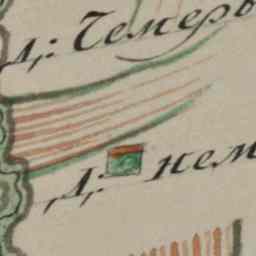 Д: Чемеръ
Д: нем